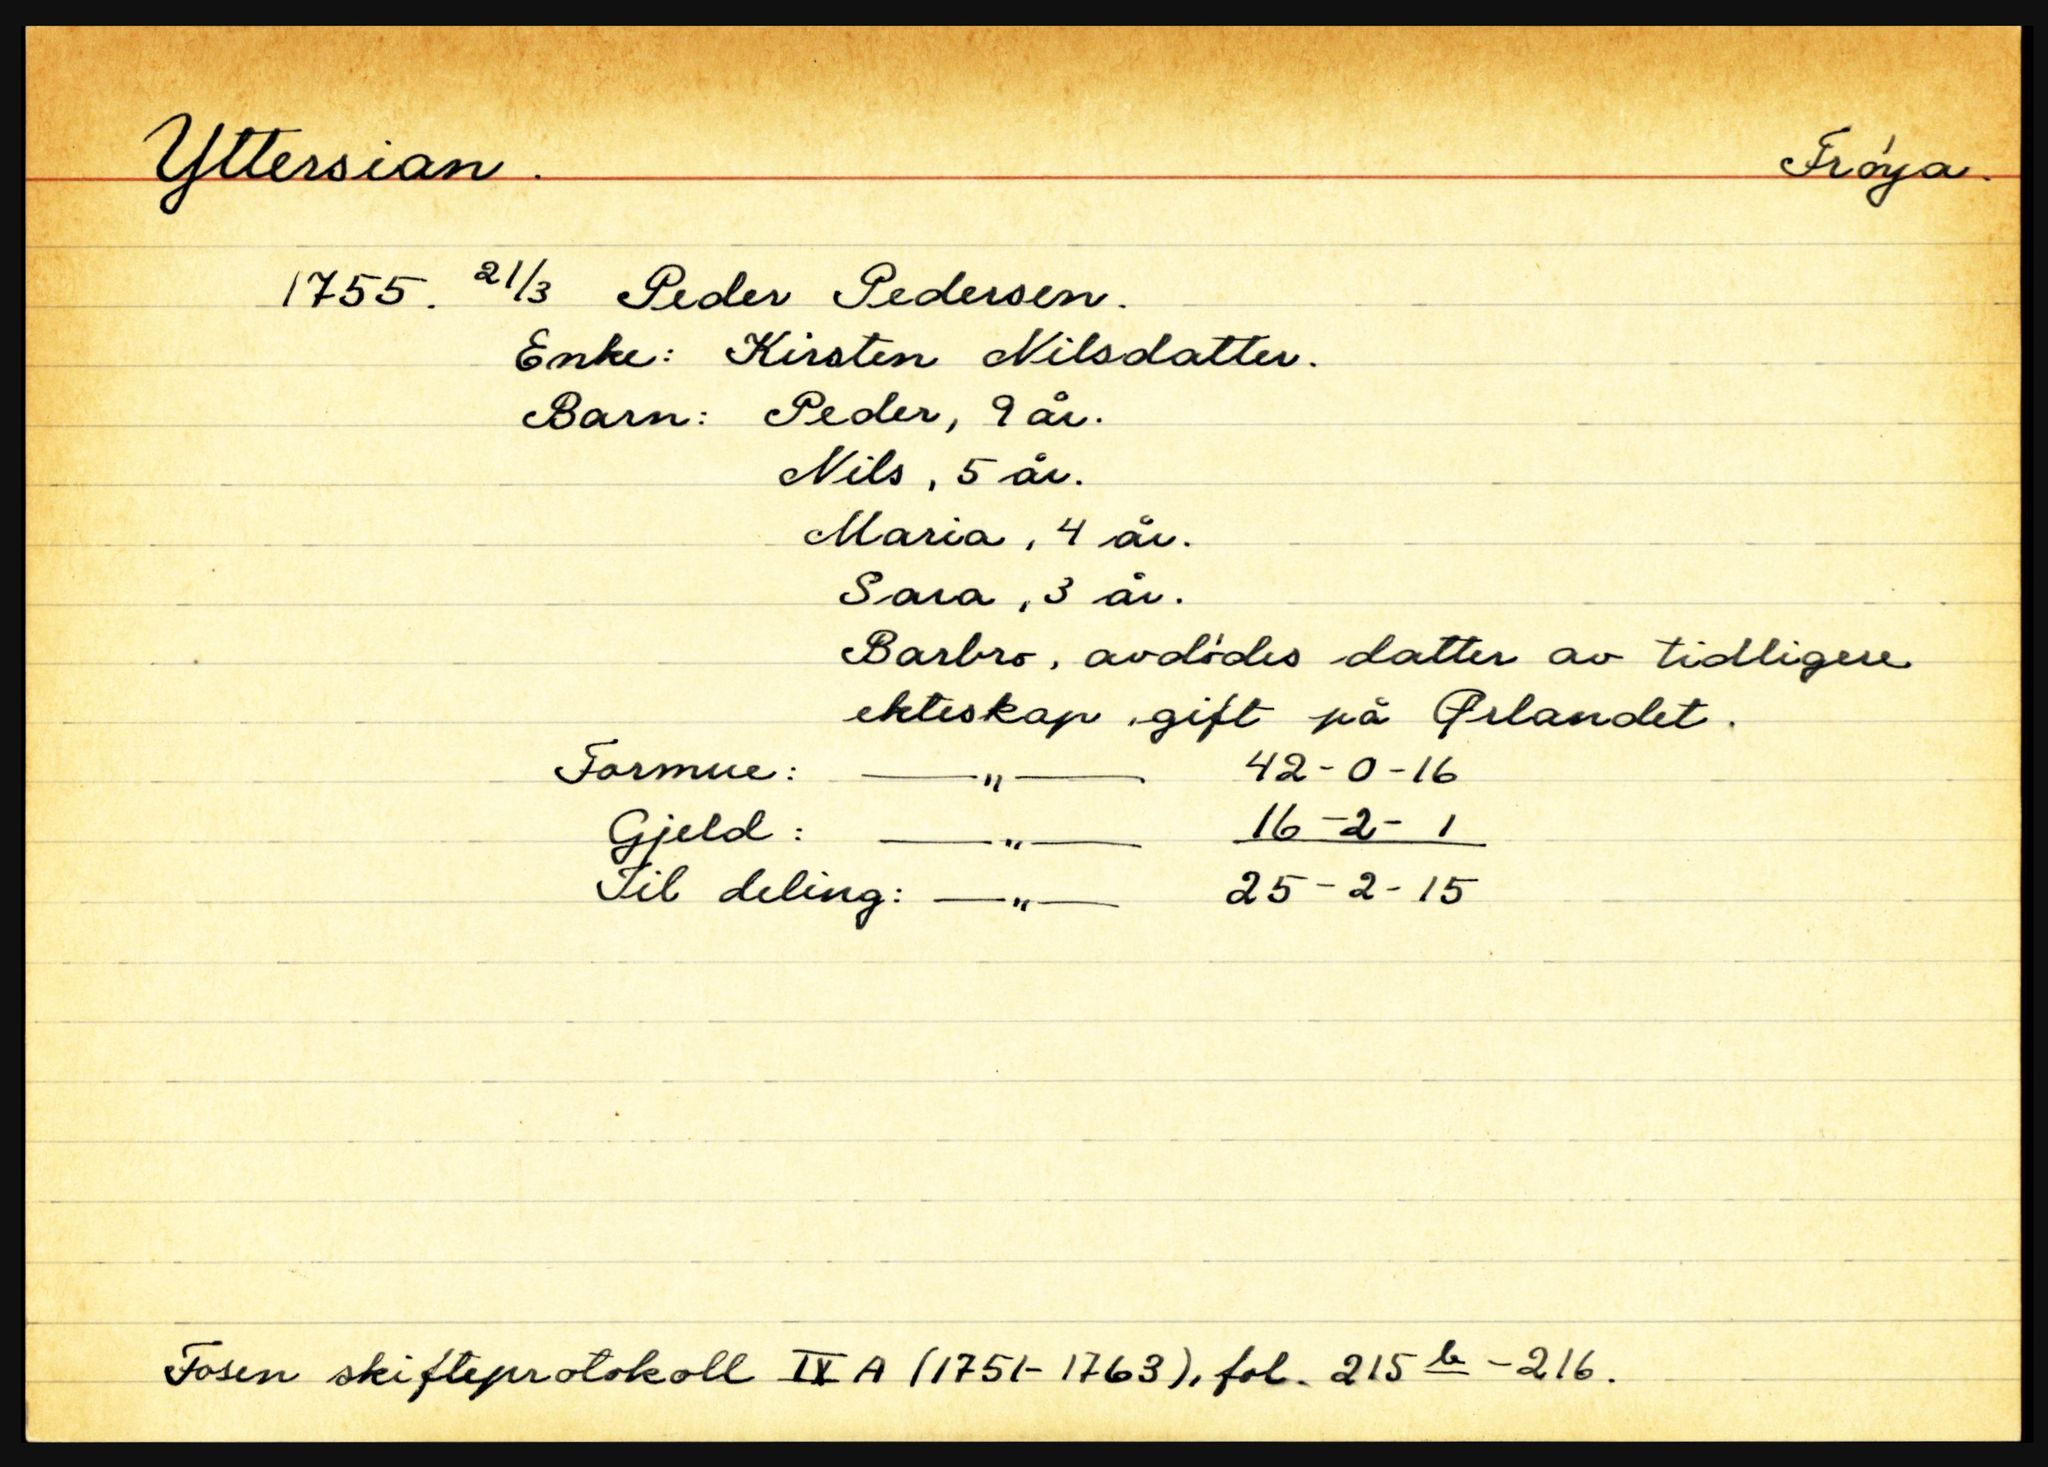 Yttersian. Frøya.
1755. 21/3 Peder Pedersen.
Enke: Kirsten Nilsdatter.
Barn: Peder, 9 år.
Nils, 5 år.
Maria, 4 år.
Sara, 3 år.
Barbro, avdødes datter av tidligere
ekteskap, gift på Ørlandet.
Formue: —"— 42-0-16
Gjeld: —"— 16-2-1
Til deling: —"— 25-2-15
Fosen skifteprotokoll IV A (1751-1763), fol. 215 b -216.